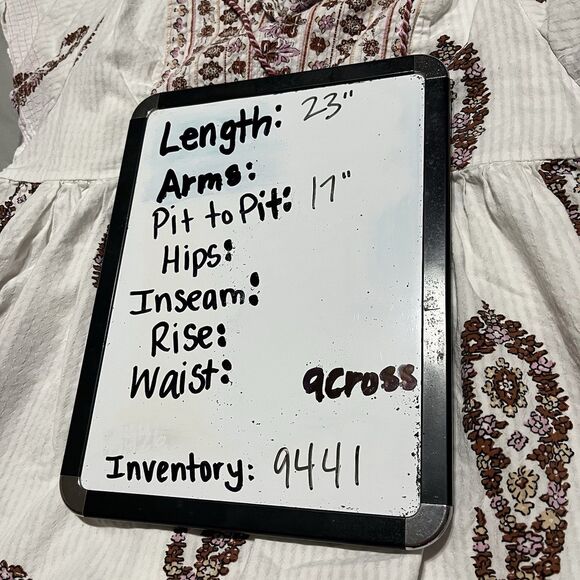 Length: 23"
Arms:
Pit to Pit: 17"
Hips:
Inseam:
Rise:
Waist: across
Inventory: 9441